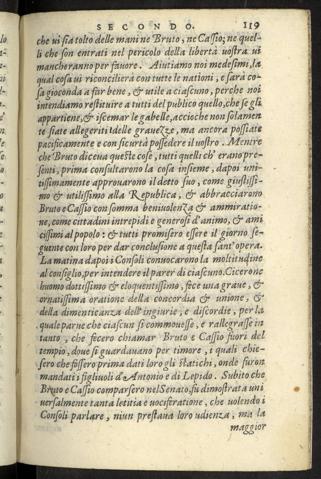 SECONDO. 119
che ui sia tolto delle mani ne Bruto, ne Cassio; ne quel-
li che son entrati nel pericolo della libertà uostra ui
mancheranno per fauore. Aiutiamo noi medesimi, la
qual cosa ui riconciliera con tutte le nationi, e sarà co-
sa gioconda a far bene, & utile a ciascuno, perche noi
intendiamo restituire a tutti del publico quello, che se gli
appartiene, & iscemar le gabelle, accioche non solamen
te siate allegeriti delle grauezze, ma ancora possiate
pacificamente e con sicurtà possedere il uostro. Mentre
che Bruto diceua queste cose, tutti quelli ch' erano pre-
senti, prima consultarono la cosa insieme, dapoi uni-
tissimamente approuarono il detto suo, come giustissi-
mo & utilissimo alla Republica, & abbracciarono
Bruto e Cassio con somma beniuolenza & ammiratio-
ne, come cittadini intrepidi e generosi d'animo, & ami
cissimi al popolo: & tutti promisero essere il giorno se-
guente con loro per dar conclusione a questa sant' opera.
La matina dapoi i Consoli conuocarono la moltitudine
al consiglio, per intendere il parer di ciascuno. Cicerone
huomo dottissimo & eloquentissimo, fece una graue, &
ornatissima oratione della concordia & unione, &
della dimenticanza dell'ingiurie, e discordie, per la
quale parue che ciascun si commouesse, e rallegrasse in
tanto, che fecero chiamar Bruto e Cassio fuori del
tempio, doue si guardauano per timore, i quali chie-
sero che fossero prima dati loro gli statichi, onde furon
mandati i figliuoli d' Antonio e di Lepido. Subito che
Bruto e Cassio comparsero nel Senato, fu dimostrata uni
uersalmente tanta letitia e uociferatione, che uolendo i
Consoli parlare, niun prestaua loro udienza, ma la
maggior